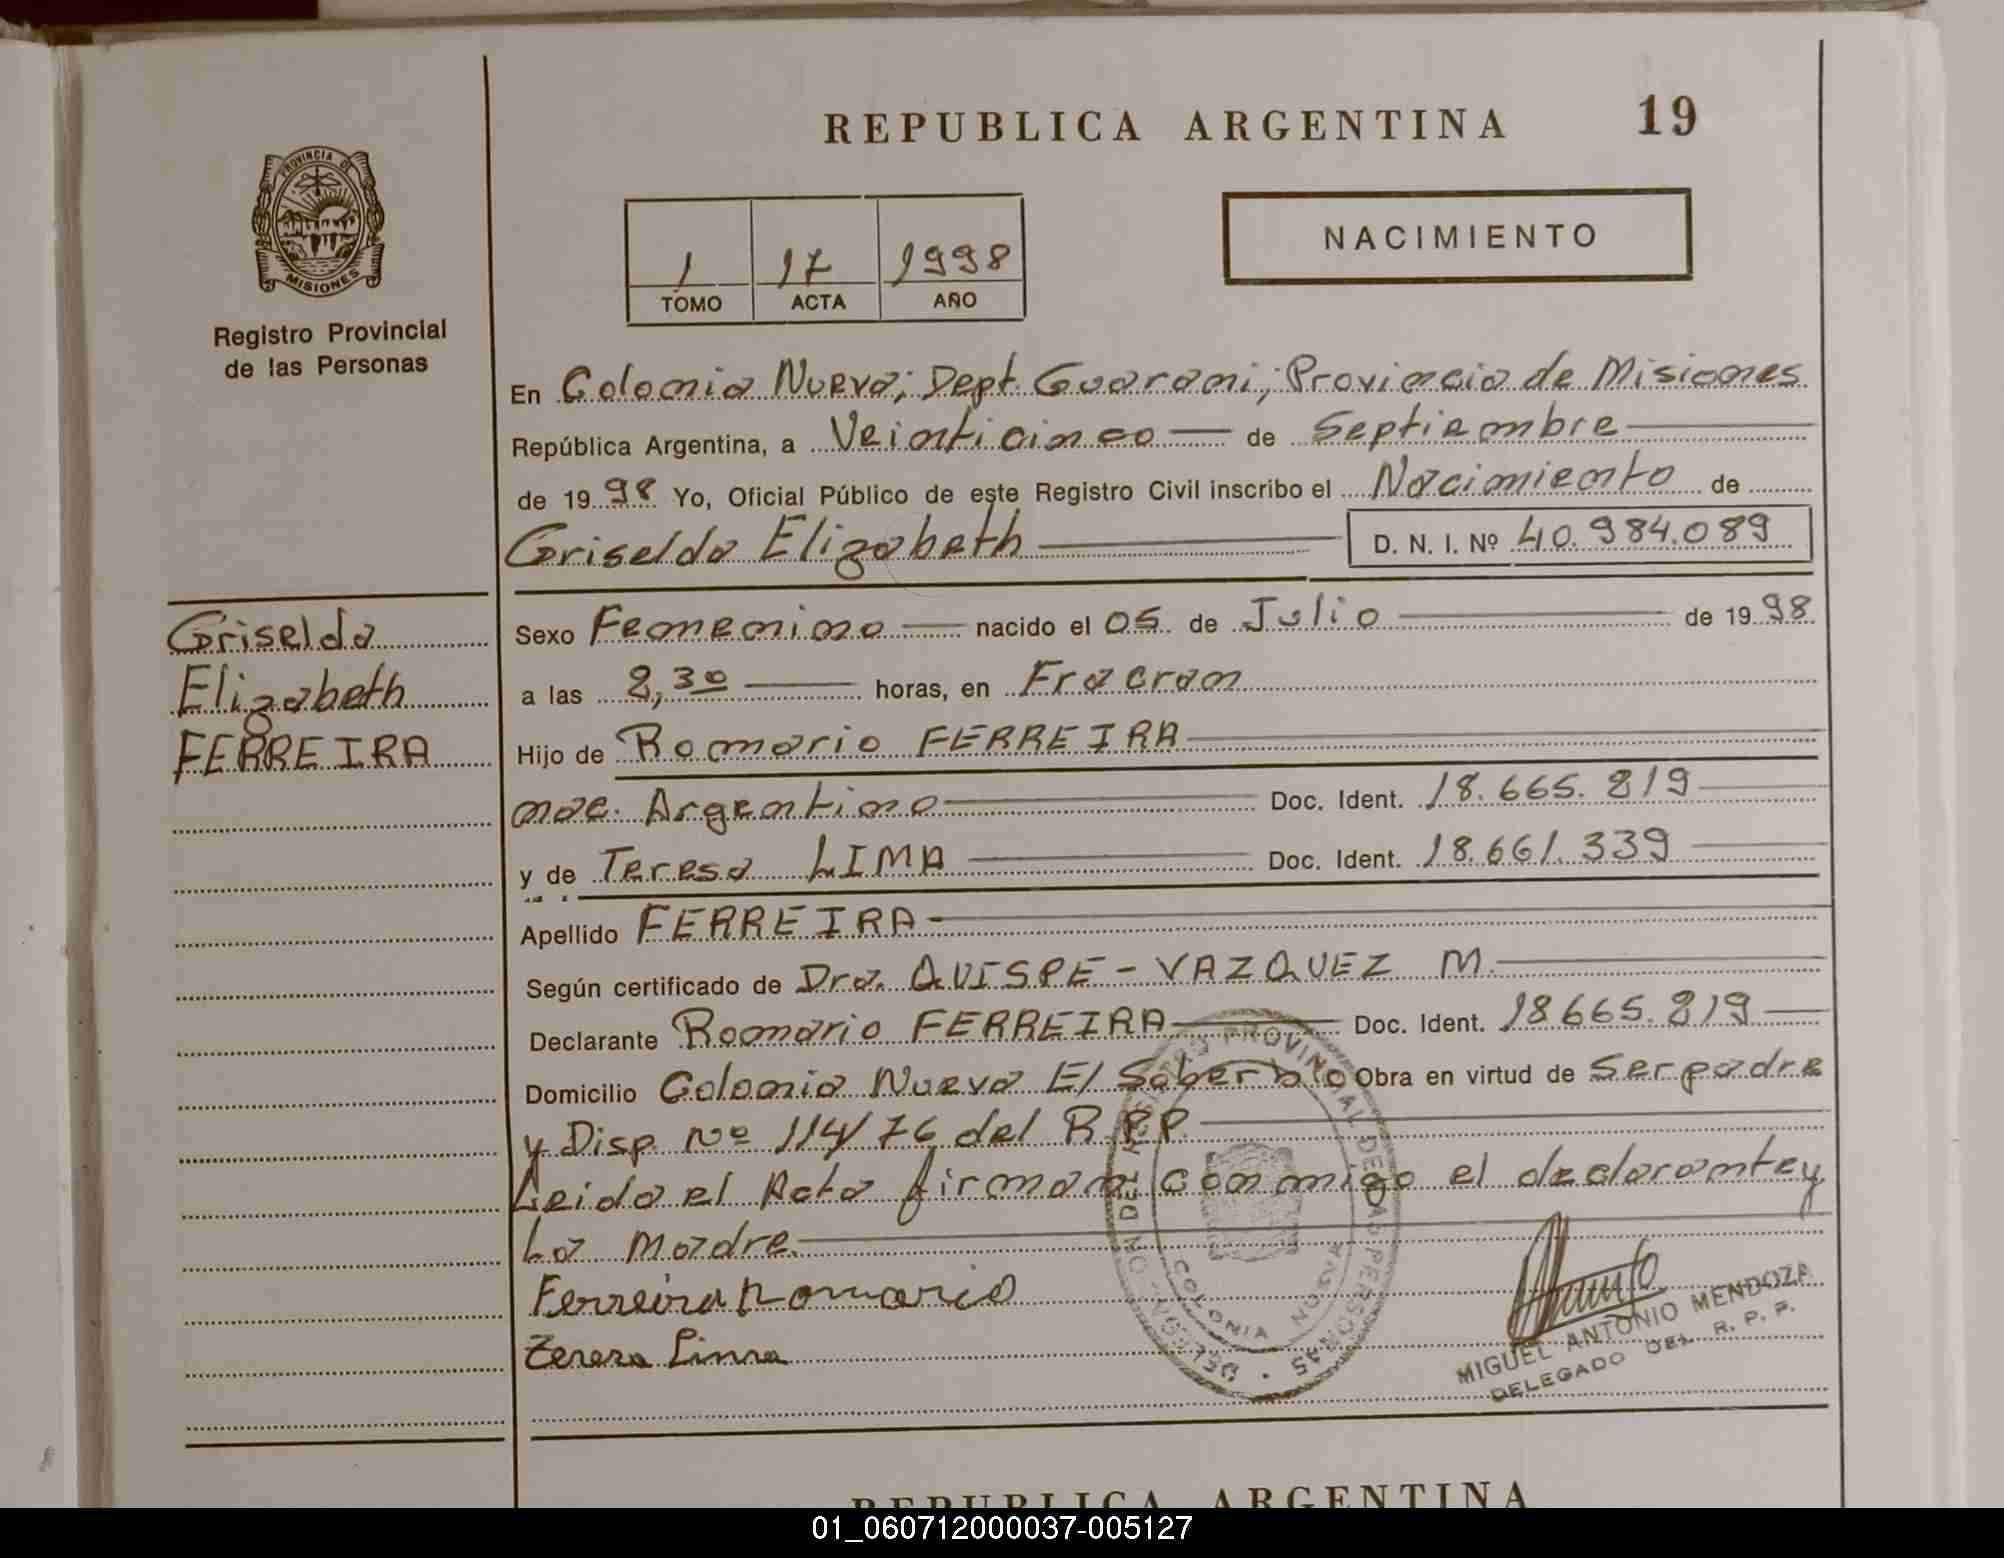 REPUBLICA ARGENTINA 19
PROVINCIA DE
MISIONES
Registro Provincial
de las Personas
1 17 1998
TOMO ACTA AÑO
NACIMIENTO
En Colonia Nueva; Dept. Guarani; Provincia de Misiones
República Argentina, a Veinticinco de Septiembre
de 1998 Yo, Oficial Público de este Registro Civil inscribo el Nacimiento de
Griselda Elizabeth D. N. I. Nº 40.984.089
Griselda
Elizabeth
FERREIRA
Sexo Femenino nacido el 05 de Julio de 1998
a las 2,30 horas, en Fracran
Hijo de Romario FERREIRA
nac. Argentino Doc. Ident. 18.665.219
y de Teresa LIMA Doc. Ident. 18.661.339
Apellido FERREIRA
Según certificado de Dra. QUISPE-VAZQUEZ M.
Declarante Romario FERREIRA Doc. Ident. 18665.219
Domicilio Colonia Nueva El Soberbio Obra en virtud de ser padre
y Disp. Nº 114/76 del R.P.P.
Leida el Acta firman conmigo el declarante y
La madre.
Ferreira Romario
Teresa Lima
DELEGACION DEL REGISTRO PROVINCIAL DE LAS PERSONAS
COLONIA NUEVA
MIGUEL ANTONIO MENDOZA
DELEGADO DEL R. P. P.
REPUBLICA ARGENTINA
01_060712000037-005127